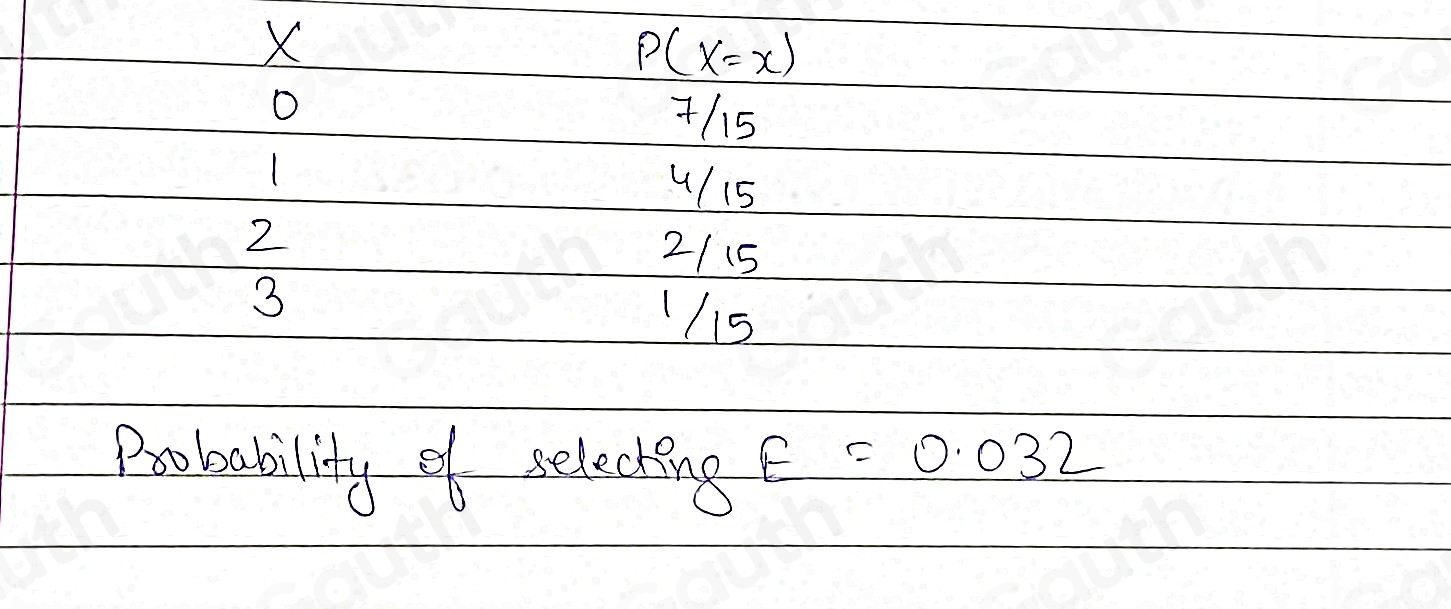 X P(X=x)
0 7/15
1 4/15
2 2/15
3 1/15
Probability of selecting E = 0.032